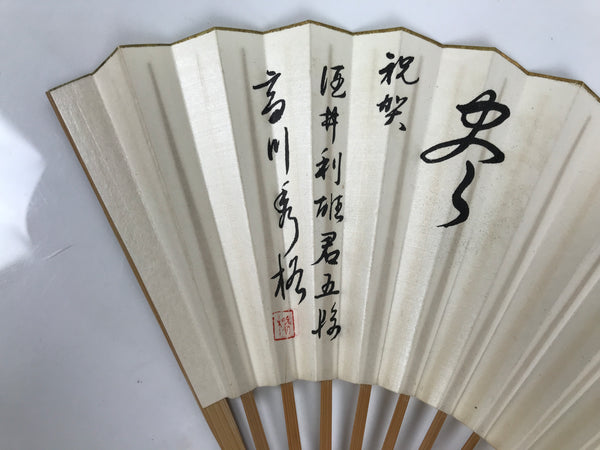 祝賀
酒井利雄君五段
高川秀格